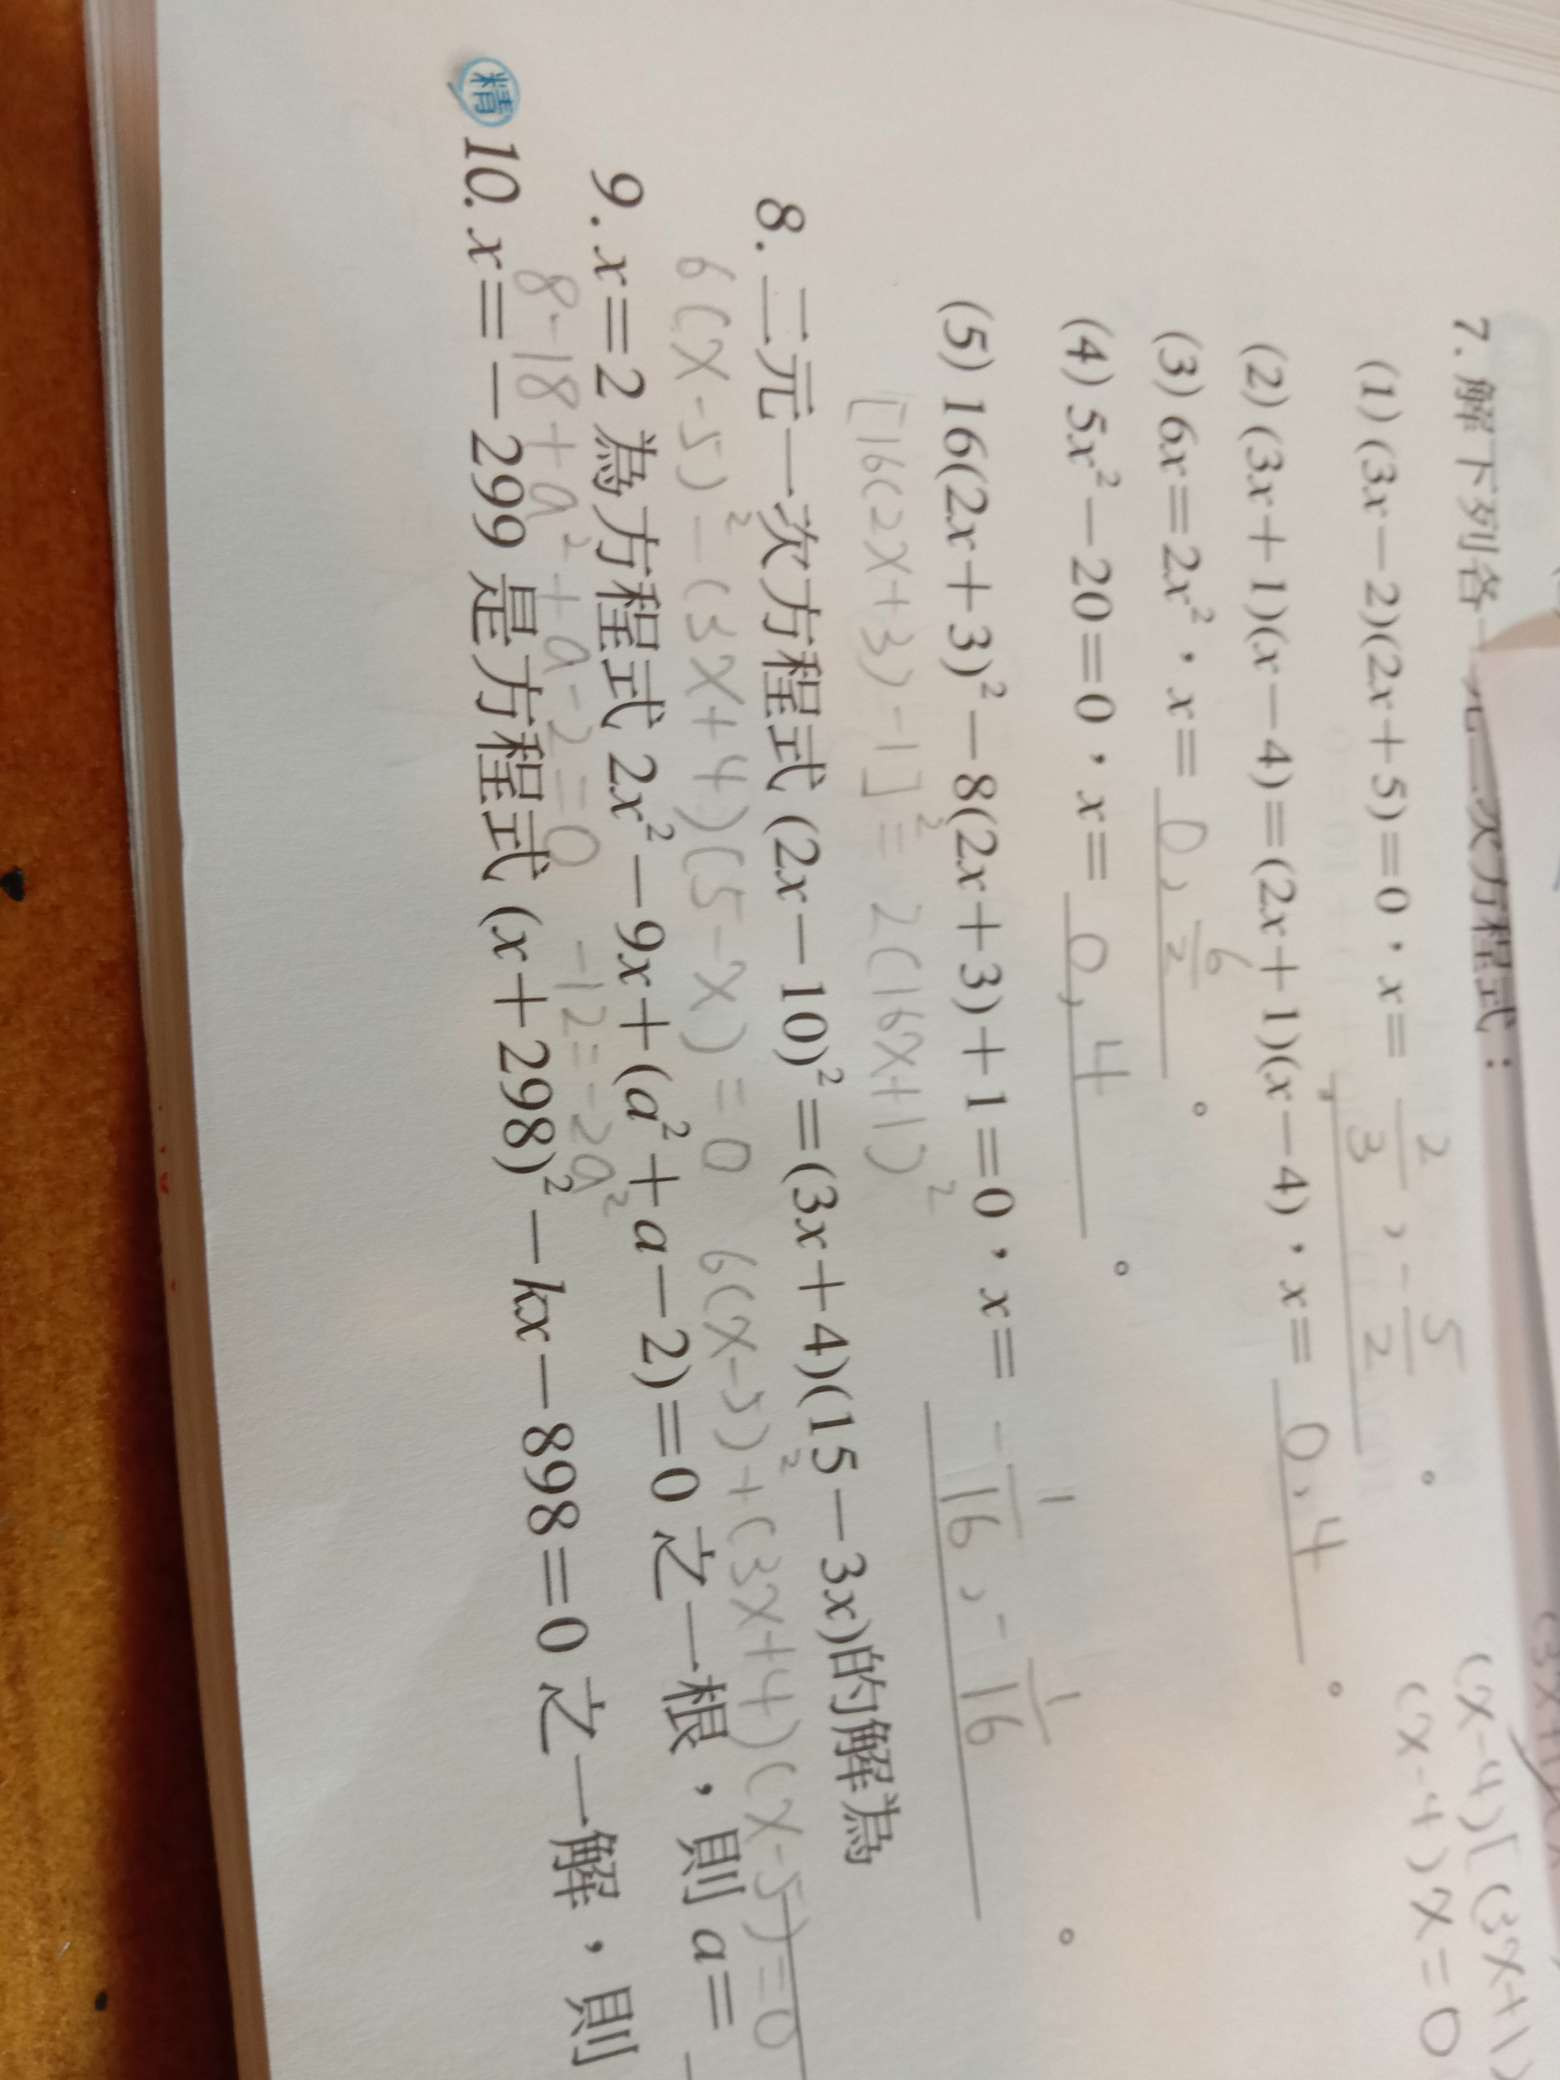 7. 解下列各一元二次方程式：
(1) (3x－2)(2x＋5)＝0，x＝ 2/3 , -5/2 。
(2) (3x＋1)(x－4)＝(2x＋1)(x－4)，x＝ 0, 4 。
(x-4)[(3x+1)
(x-4)x=0
(3) 6x＝2x²，x＝ 0, 6/2 。
(4) 5x²－20＝0，x＝ 0, 4 。
(5) 16(2x＋3)²－8(2x＋3)＋1＝0，x＝ -1/16 , -1/16 。
[16(2x+3)-1]²= 2(16x+1)²
8. 二元一次方程式 (2x－10)²＝(3x＋4)(15－3x)的解為
6(x-5)²-(3x+4)(5-x)=0 6(x-5)²+(3x+4)(x-5)=0
9. x＝2 為方程式 2x²－9x＋(a²＋a－2)＝0 之一根，則 a＝
8-18+a²+a-2=0 -12=-2a²
精 10. x＝－299 是方程式 (x＋298)²－kx－898＝0 之一解，則